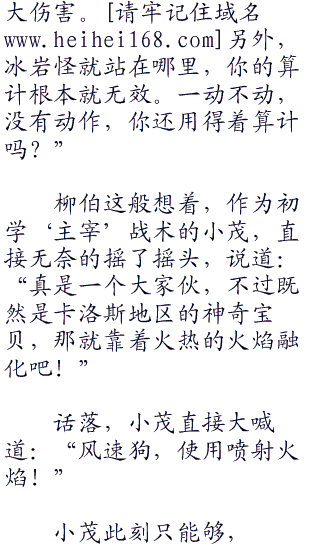 大伤害。[请牢记住域名
www.heihei168.com]另外，
冰岩怪就站在哪里，你的算
计根本就无效。一动不动，
没有动作，你还用得着算计
吗？”
柳伯这般想着，作为初
学‘主宰’战术的小茂，直
接无奈的摇了摇头，说道：
“真是一个大家伙，不过既
然是卡洛斯地区的神奇宝
贝，那就靠着火热的火焰融
化吧！”
话落，小茂直接大喊
道：“风速狗，使用喷射火
焰！”
小茂此刻只能够，